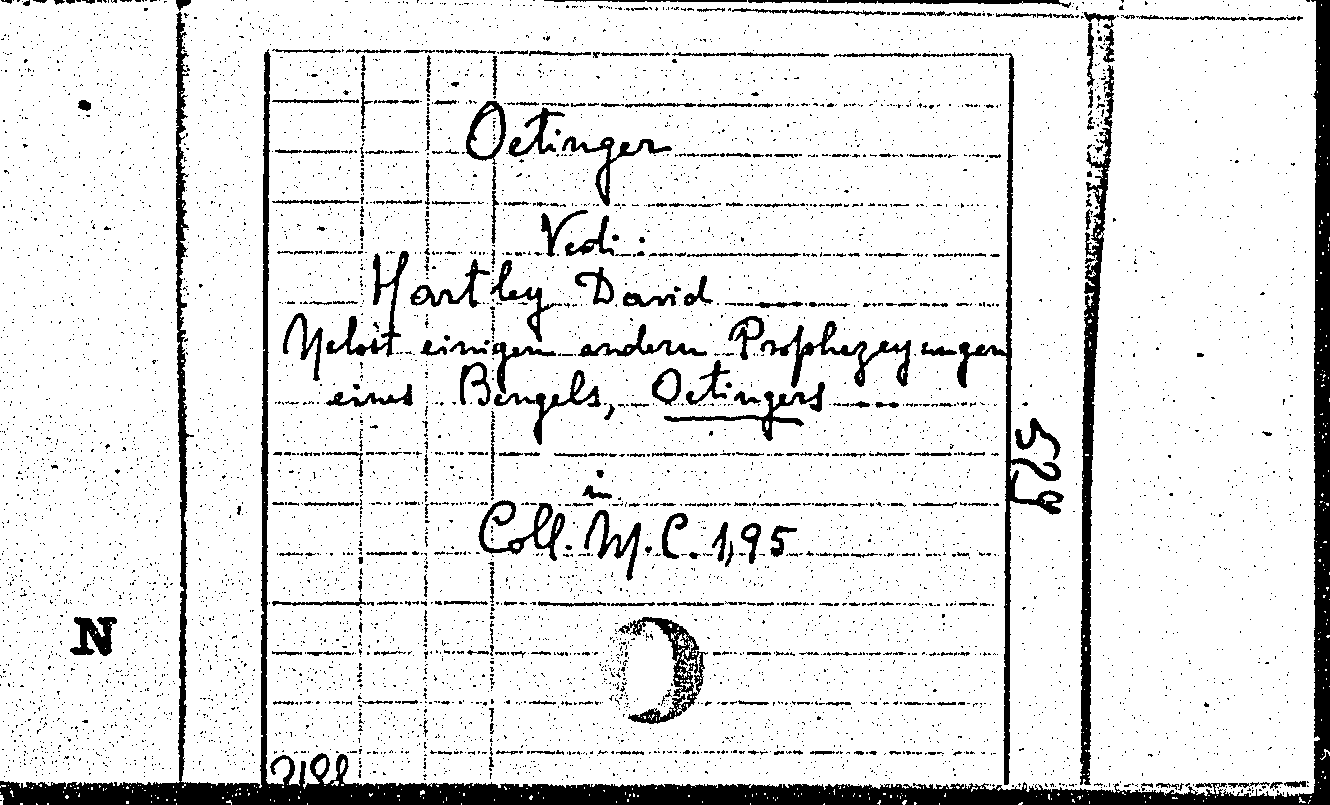 Oetinger
Vedi:
Hartley David ........
Nebst einigen andern Prophezeyungen
eines Bengels, Oetingers ...
in
Coll. M. C. 1,95
N